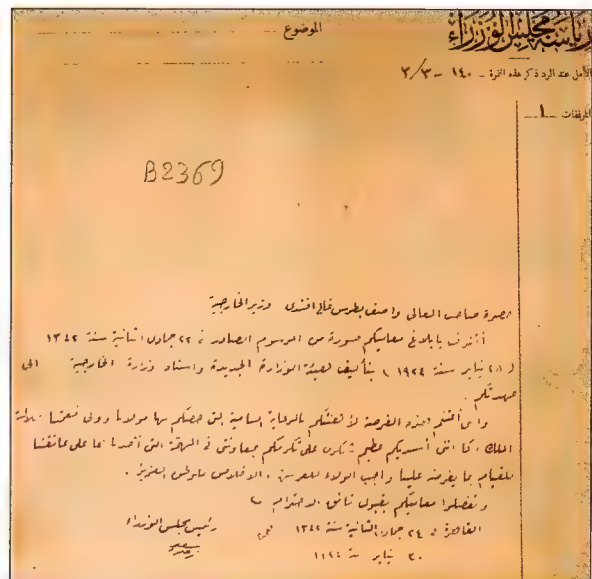 رياسة مجلس الوزراء
الموضوع
الأمل عند الرد ذكر هذه النمرة - ١٤٠ - ٣/٣
المرفقات ١
B2369
حضرة صاحب المعالى واصف بطرس غالى افندى وزير الخارجية
أتشرف بابلاغ معاليكم صورة من المرسوم الصادر فى ٢٢ جمادى الثانية سنة ١٣٤٢
(٢٨ يناير سنة ١٩٢٤) بتأليف هيئة الوزارة الجديدة واسناد وزارة الخارجية الى
عهدتكم.
وانى أغتنم هذه الفرصة لأهنئكم بالرعاية السامية التى خصكم بها مولانا وولى نعمتنا جلالة
الملك. كما اننى أسديكم عظيم شكرى على تكرمكم بمعاونتى فى المهمة التى أخذناها على عاتقنا
للقيام بما يفرضه علينا واجب الولاء للعرش، والاخلاص للوطن العزيز.
وتفضلوا معاليكم بقبول فائق الاحترام
القاهرة فى ٢٤ جمادى الثانية سنة ١٣٤٢
رئيس مجلس الوزراء
٣٠ يناير سنة ١٩٢٤